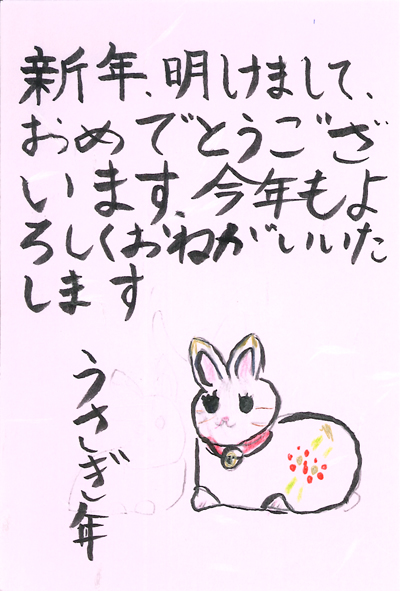 新年、明けまして、
おめでとうござ
います、今年もよ
ろしくおねがいいた
します
うさぎ年